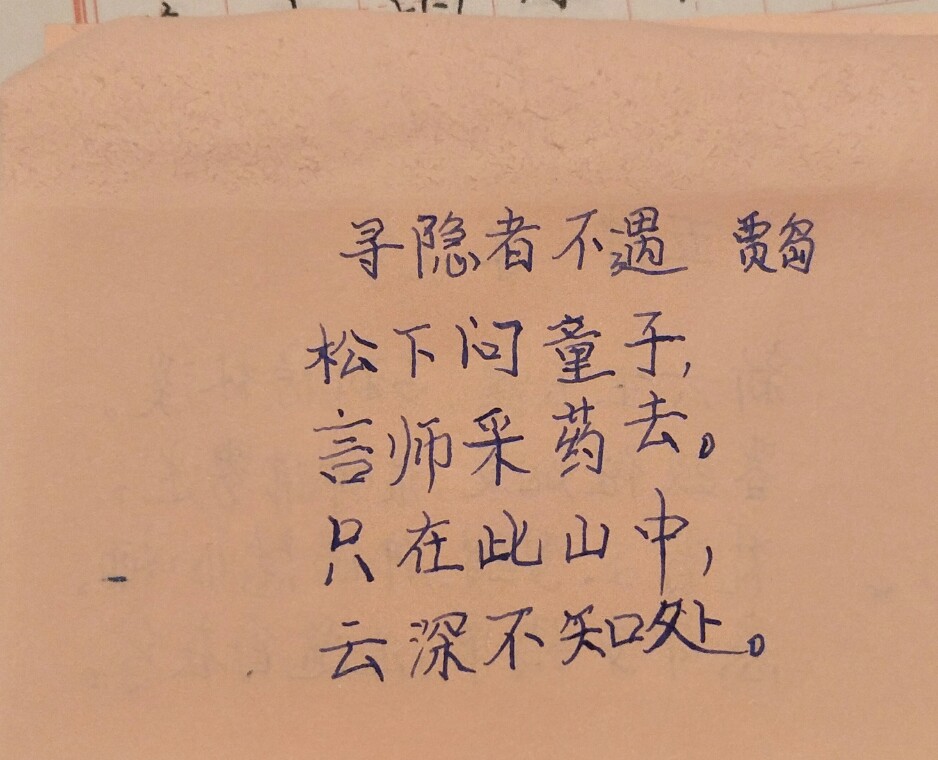 寻隐者不遇 贾岛
松下问童子,
言师采药去。
只在此山中,
云深不知处。